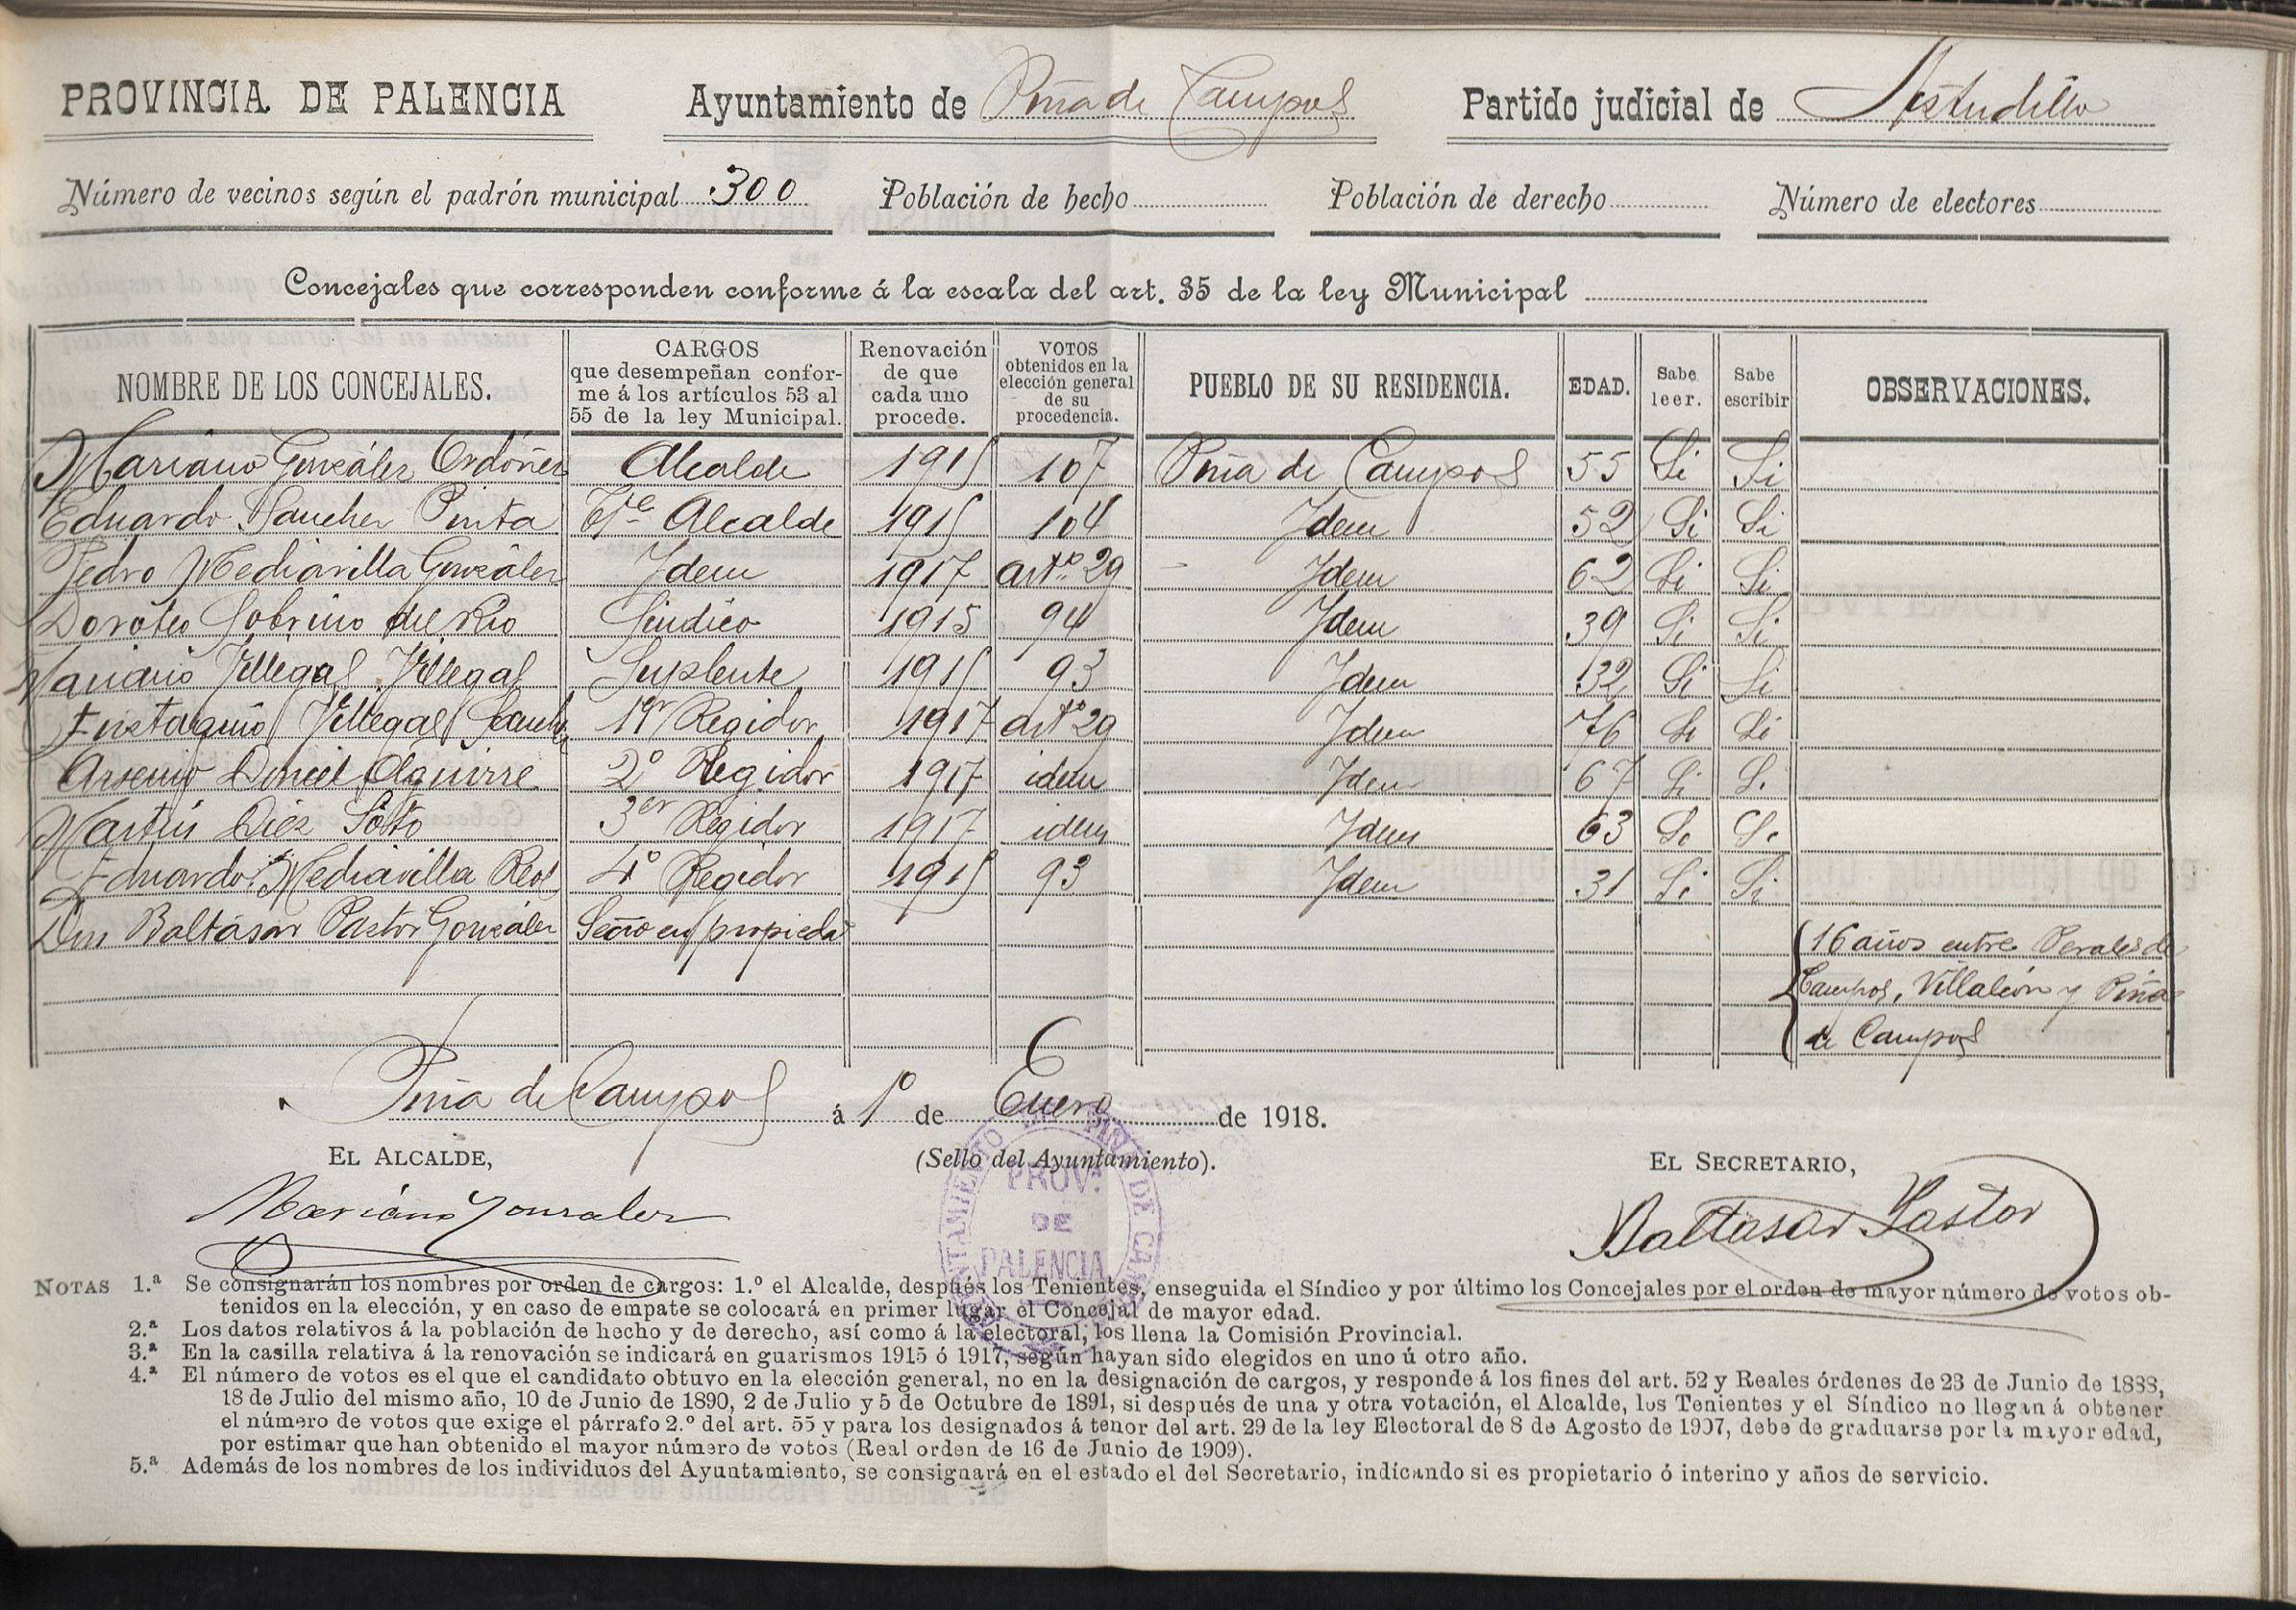 PROVINCIA DE PALENCIA Ayuntamiento de Piña de Campos Partido judicial de Astudillo
Número de vecinos según el padrón municipal 300 Población de hecho Población de derecho Número de electores
Concejales que corresponden conforme á la escala del art. 35 de la ley Municipal
NOMBRE DE LOS CONCEJALES. CARGOS que desempeñan conforme á los artículos 53 al 55 de la ley Municipal. Renovación de que cada uno procede. VOTOS obtenidos en la elección general de su procedencia. PUEBLO DE SU RESIDENCIA. EDAD. Sabe leer. Sabe escribir OBSERVACIONES.
Mariano González Ordóñez Alcalde 1915 107 Piña de Campos 55 Si Si
Eduardo Sanchez Pinta Tte Alcalde 1915 104 Idem 52 Si Si
Pedro Mediavilla González Idem 1917 artº 29 Idem 62 Si Si
Doroteo Sobrino del Rio Sindico 1915 94 Idem 39 Si Si
Mariano Villegas Villegas Suplente 1915 93 Idem 32 Si Si
Eustaquio Villegas 1er Regidor 1917 artº 29 Idem 76 Si Si
Arsenio Doncel Aguirre 2º Regidor 1917 idem Idem 67 Si Si
Martin Diez Sotto 3er Regidor 1917 idem Idem 63 Si Si
Eduardo Mediavilla Reol 4º Regidor 1915 93 Idem 31 Si Si
Don Baltásar Pastor González Secrio en propiedad
16 años entre Perales de
Campos, Villaleón y Piña
de Campos
Piña de Campos á 1º de Enero de 1918.
EL ALCALDE, (Sello del Ayuntamiento). EL SECRETARIO,
AYUNTAMIENTO DE PIÑA DE CAMPOS
PROV.ª
DE
PALENCIA
Mariano Gonzalez Baltasar Pastor
NOTAS 1.ª Se consignarán los nombres por orden de cargos: 1.º el Alcalde, después los Tenientes, enseguida el Síndico y por último los Concejales por el orden de mayor número de votos ob-
tenidos en la elección, y en caso de empate se colocará en primer lugar el Concejal de mayor edad.
2.ª Los datos relativos á la población de hecho y de derecho, así como á la electoral, los llena la Comisión Provincial.
3.ª En la casilla relativa á la renovación se indicará en guarismos 1915 ó 1917, según hayan sido elegidos en uno ú otro año.
4.ª El número de votos es el que el candidato obtuvo en la elección general, no en la designación de cargos, y responde á los fines del art. 52 y Reales órdenes de 23 de Junio de 1888,
18 de Julio del mismo año, 10 de Junio de 1890, 2 de Julio y 5 de Octubre de 1891, si después de una y otra votación, el Alcalde, los Tenientes y el Síndico no llegan á obtener
el número de votos que exige el párrafo 2.º del art. 55 y para los designados á tenor del art. 29 de la ley Electoral de 8 de Agosto de 1907, debe de graduarse por la mayor edad,
por estimar que han obtenido el mayor número de votos (Real orden de 16 de Junio de 1909).
5.ª Además de los nombres de los individuos del Ayuntamiento, se consignará en el estado el del Secretario, indicando si es propietario ó interino y años de servicio.